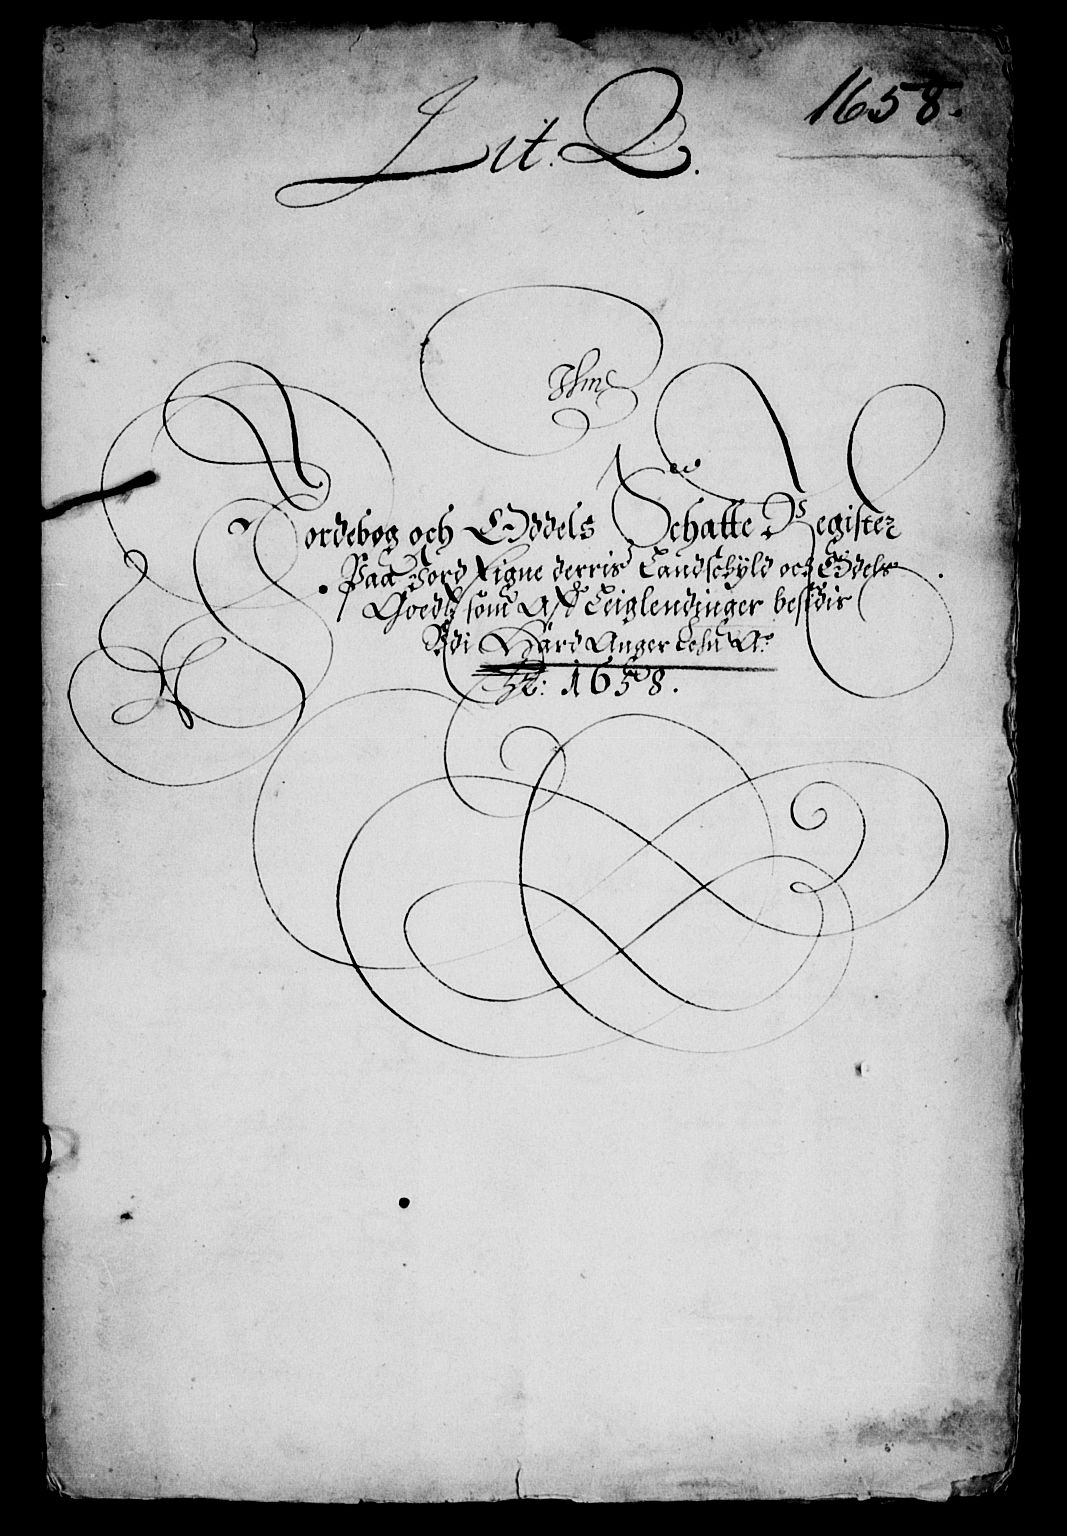 1658.
Lit. Q.
Jordebog och Oddels Schatte Register
Paa Jord Eigne derris Landschyld och Oddels
Goedtz som Leiglendinger besidir
Udi Hard Anger Lehn A.º
1658.